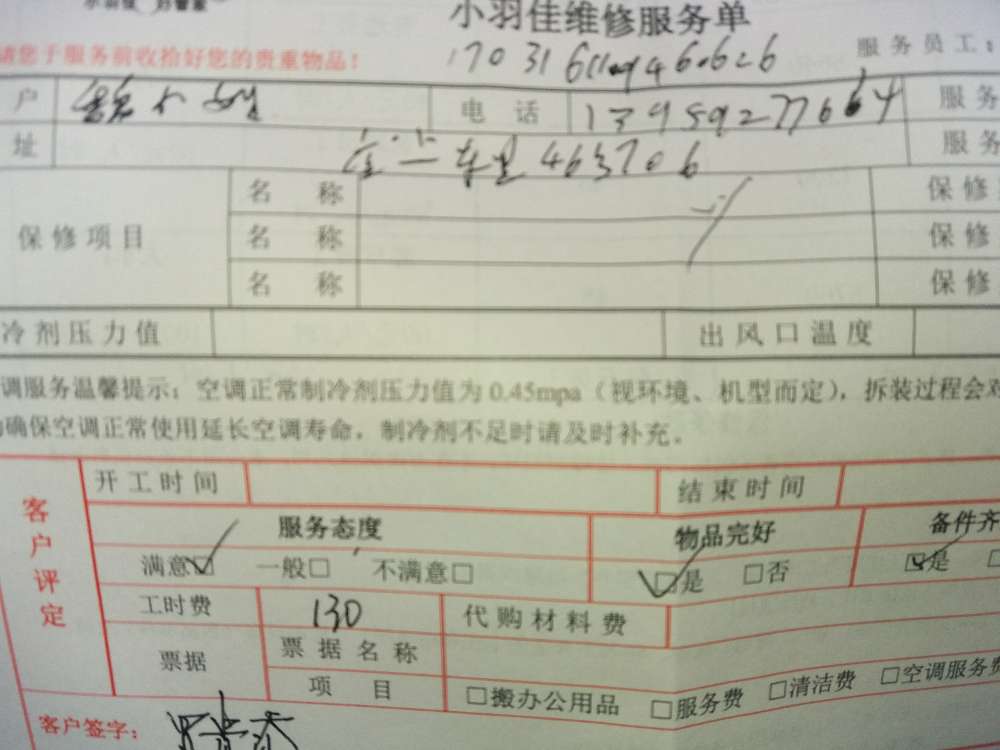 小羽佳维修服务单
请您于服务前收拾好您的贵重物品！
服务员工：
户 电 话 服务
址 463706 服务
名 称 保修
保修项目 名 称 保修
名 称 保修
冷剂压力值 出风口温度
调服务温馨提示：空调正常制冷剂压力值为 0.45mpa（视环境、机型而定），拆装过程会对
确保空调正常使用延长空调寿命，制冷剂不足时请及时补充。
开工时间 结束时间
客户评定
服务态度 物品完好 备件齐
满意□ 一般□ 不满意□ □是 □否 □是
工时费 130 代购材料费
票据 票据名称
项 目 □搬办公用品 □服务费 □清洁费 □空调服务费
客户签字：